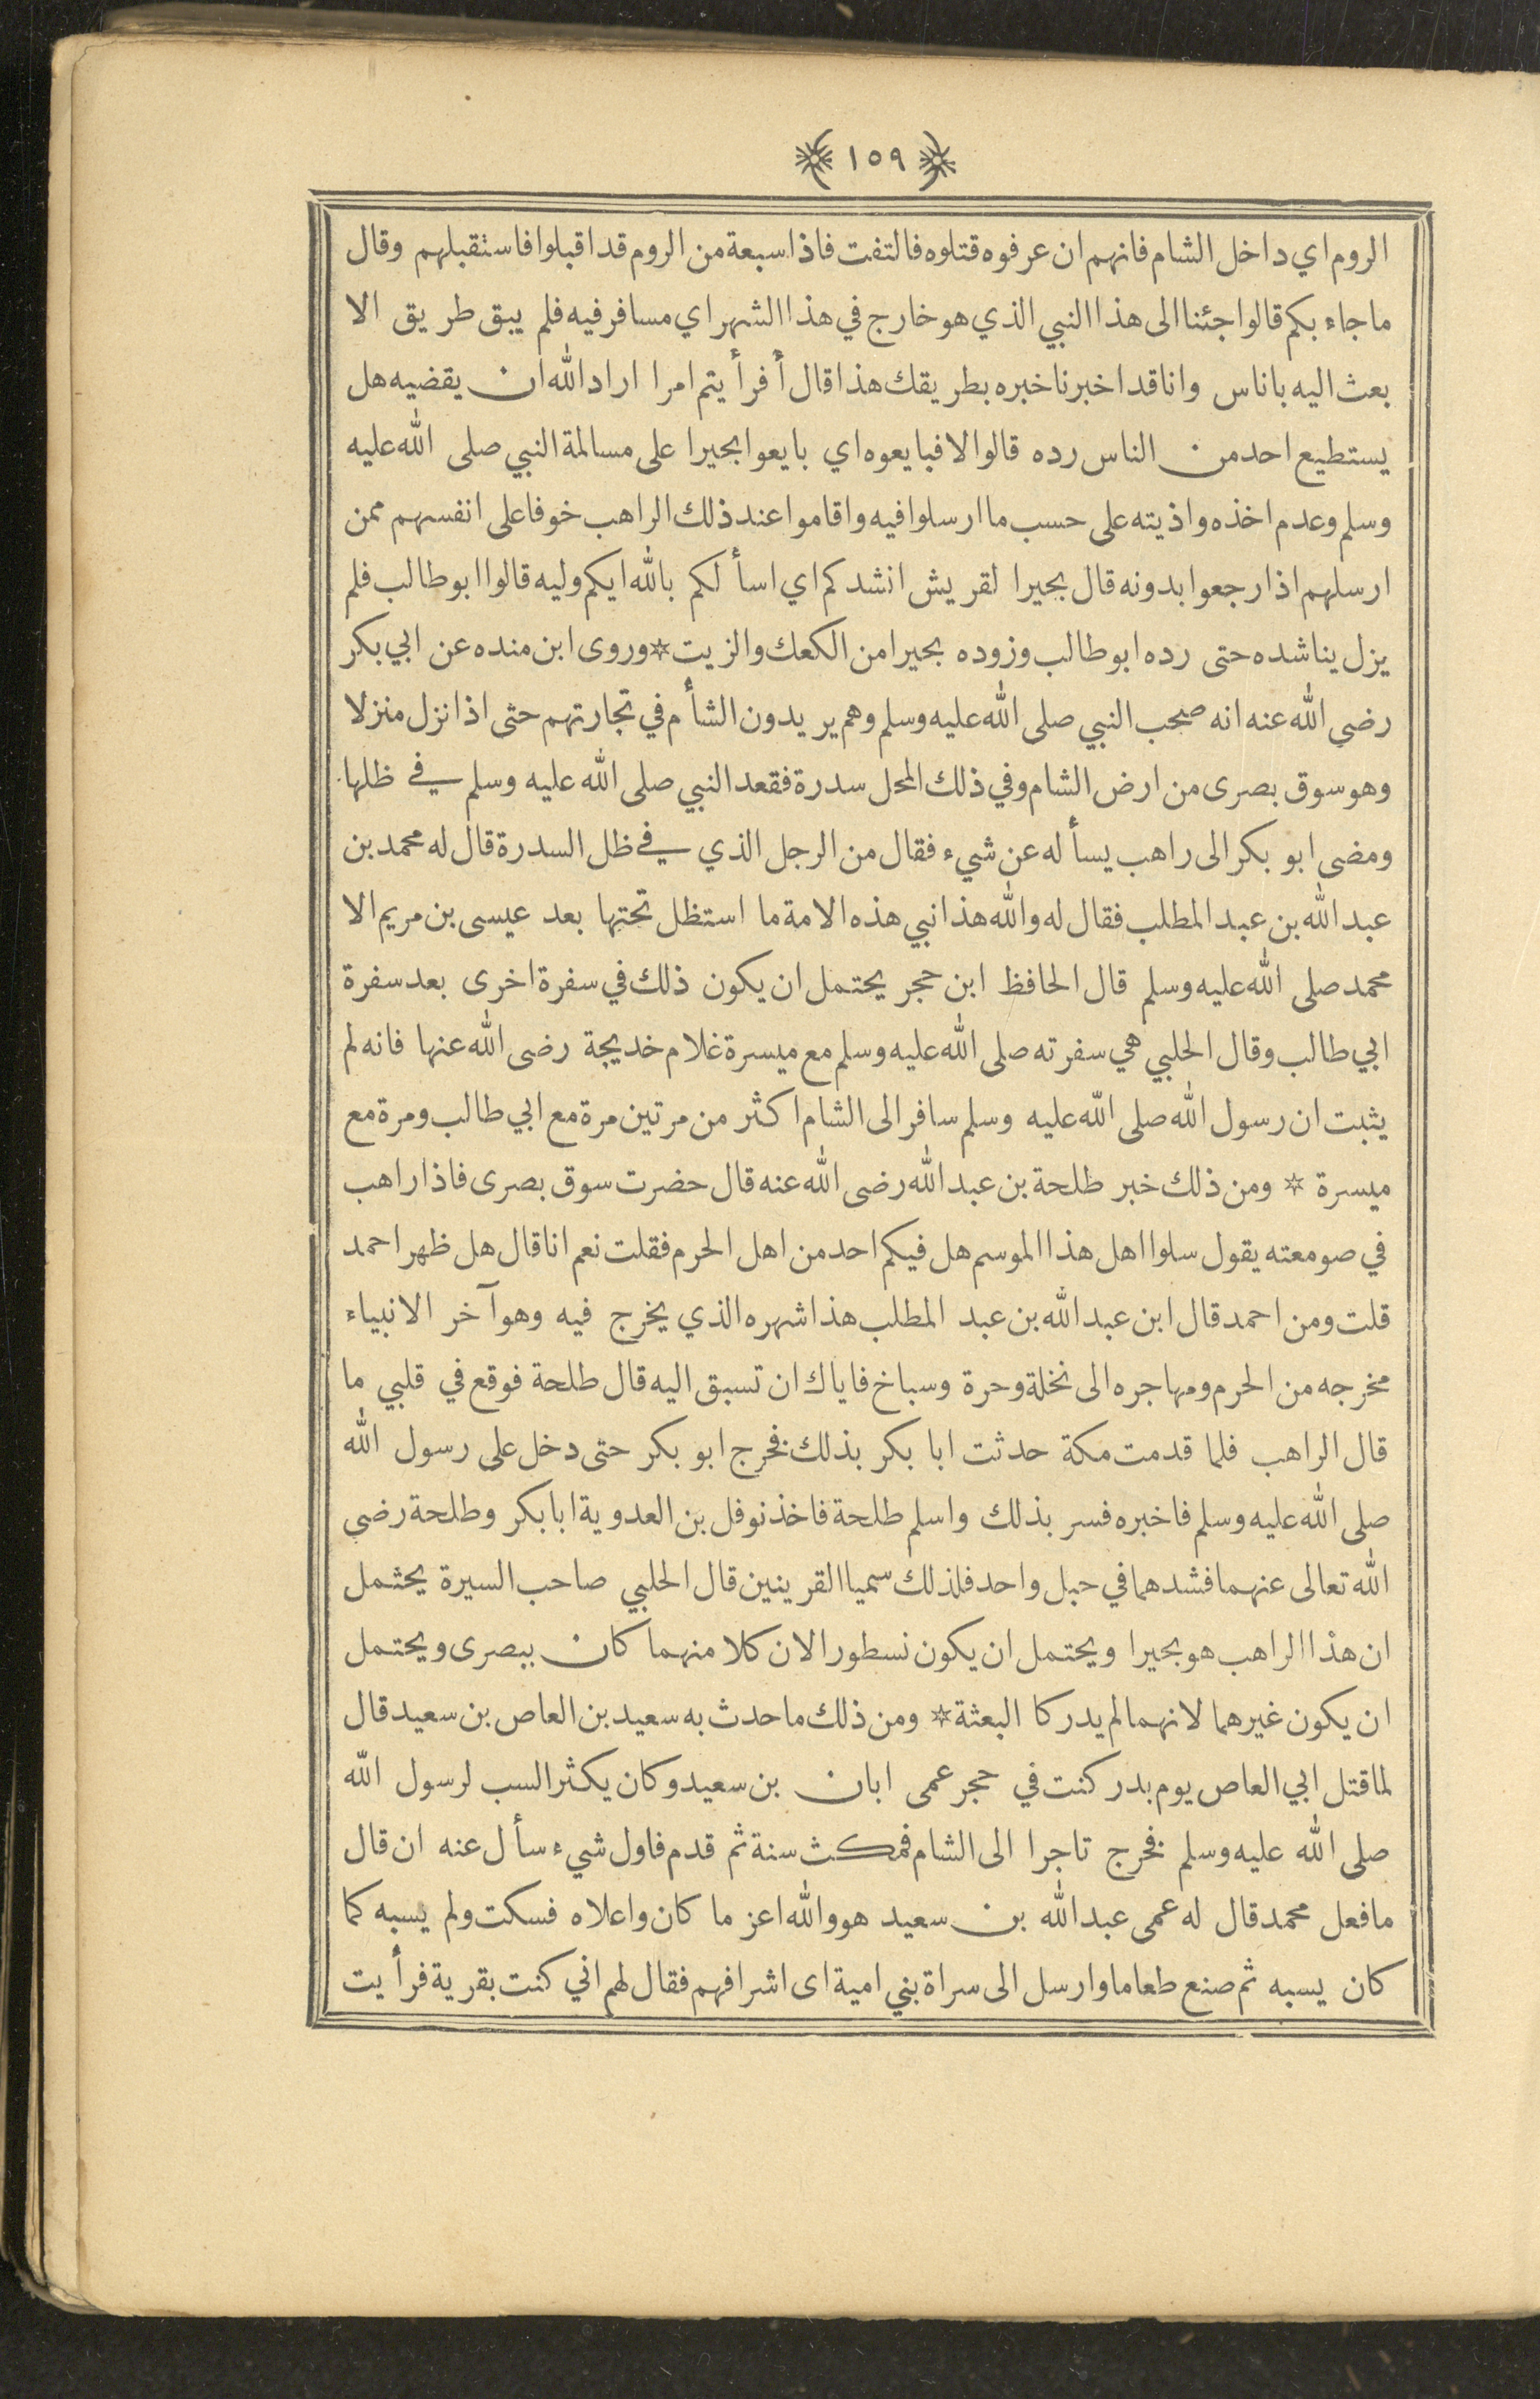 ١٥٩
الروم اي داخل الشام فانهم ان عرفوه قتلوه فالتفت فاذا سبعة من الروم قد اقبلوا فاستقبلهم وقال
ما جاء بكم قالوا جئنا الى هذا النبي الذي هو خارج في هذا الشهر اي مسافر فيه فلم يبق طريق الا
بعث اليه باناس وانا قد اخبرنا خبره بطريقك هذا قال أفرأيتم امرا اراد الله ان يقضيه هل
يستطيع احد من الناس رده قالوا لا فبايعوه اي بايعوا بحيرا على مسالمة النبي صلى الله عليه
وسلم وعدم اخذه واذيته على حسب ما ارسلوا فيه واقاموا عند ذلك الراهب خوفا على انفسهم ممن
ارسلهم اذا رجعوا بدونه قال بحيرا لقريش انشدكم اي اسألكم بالله ايكم وليه قالوا ابو طالب فلم
يزل يناشده حتى رده ابو طالب وزوده بحيرا من الكعك والزيت * وروى ابن منده عن ابي بكر
رضي الله عنه انه صحب النبي صلى الله عليه وسلم وهم يريدون الشأم في تجارتهم حتى اذا نزل منزلا
وهو سوق بصرى من ارض الشام وفي ذلك المحل سدرة فقعد النبي صلى الله عليه وسلم في ظلها
ومضى ابو بكر الى راهب يسأله عن شيء فقال من الرجل الذي في ظل السدرة قال له محمد بن
عبد الله بن عبد المطلب فقال له والله هذا نبي هذه الامة ما استظل تحتها بعد عيسى بن مريم الا
محمد صلى الله عليه وسلم قال الحافظ ابن حجر يحتمل ان يكون ذلك في سفرة اخرى بعد سفرة
ابي طالب وقال الحلبي هي سفرته صلى الله عليه وسلم مع ميسرة غلام خديجة رضى الله عنها فانه لم
يثبت ان رسول الله صلى الله عليه وسلم سافر الى الشام اكثر من مرتين مرة مع ابي طالب ومرة مع
ميسرة * ومن ذلك خبر طلحة بن عبد الله رضى الله عنه قال حضرت سوق بصرى فاذا راهب
في صومعته يقول سلوا اهل هذا الموسم هل فيكم احد من اهل الحرم فقلت نعم انا قال هل ظهر احمد
قلت ومن احمد قال ابن عبد الله بن عبد المطلب هذا شهره الذي يخرج فيه وهو آخر الانبياء
مخرجه من الحرم ومهاجره الى نخلة وحرة وسباخ فاياك ان تسبق اليه قال طلحة فوقع في قلبي ما
قال الراهب فلما قدمت مكة حدثت ابا بكر بذلك فخرج ابو بكر حتى دخل على رسول الله
صلى الله عليه وسلم فاخبره فسر بذلك واسلم طلحة فاخذ نوفل بن العدوية ابا بكر وطلحة رضي
الله تعالى عنهما فشدهما في حبل واحد فلذلك سميا القرينين قال الحلبي صاحب السيرة يحتمل
ان هذا الراهب هو بحيرا ويحتمل ان يكون نسطورا لان كلا منهما كان ببصرى ويحتمل
ان يكون غيرهما لانهما لم يدركا البعثة * ومن ذلك ما حدث به سعيد بن العاص بن سعيد قال
لما قتل ابي العاص يوم بدر كنت في حجر عمى ابان بن سعيد وكان يكثر السب لرسول الله
صلى الله عليه وسلم فخرج تاجرا الى الشام فمكث سنة ثم قدم فاول شيء سأل عنه ان قال
ما فعل محمد قال له عمى عبد الله بن سعيد هو والله اعز ما كان واعلاه فسكت ولم يسبه كما
كان يسبه ثم صنع طعاما وارسل الى سراة بني امية اى اشرافهم فقال لهم اني كنت بقرية فرأيت